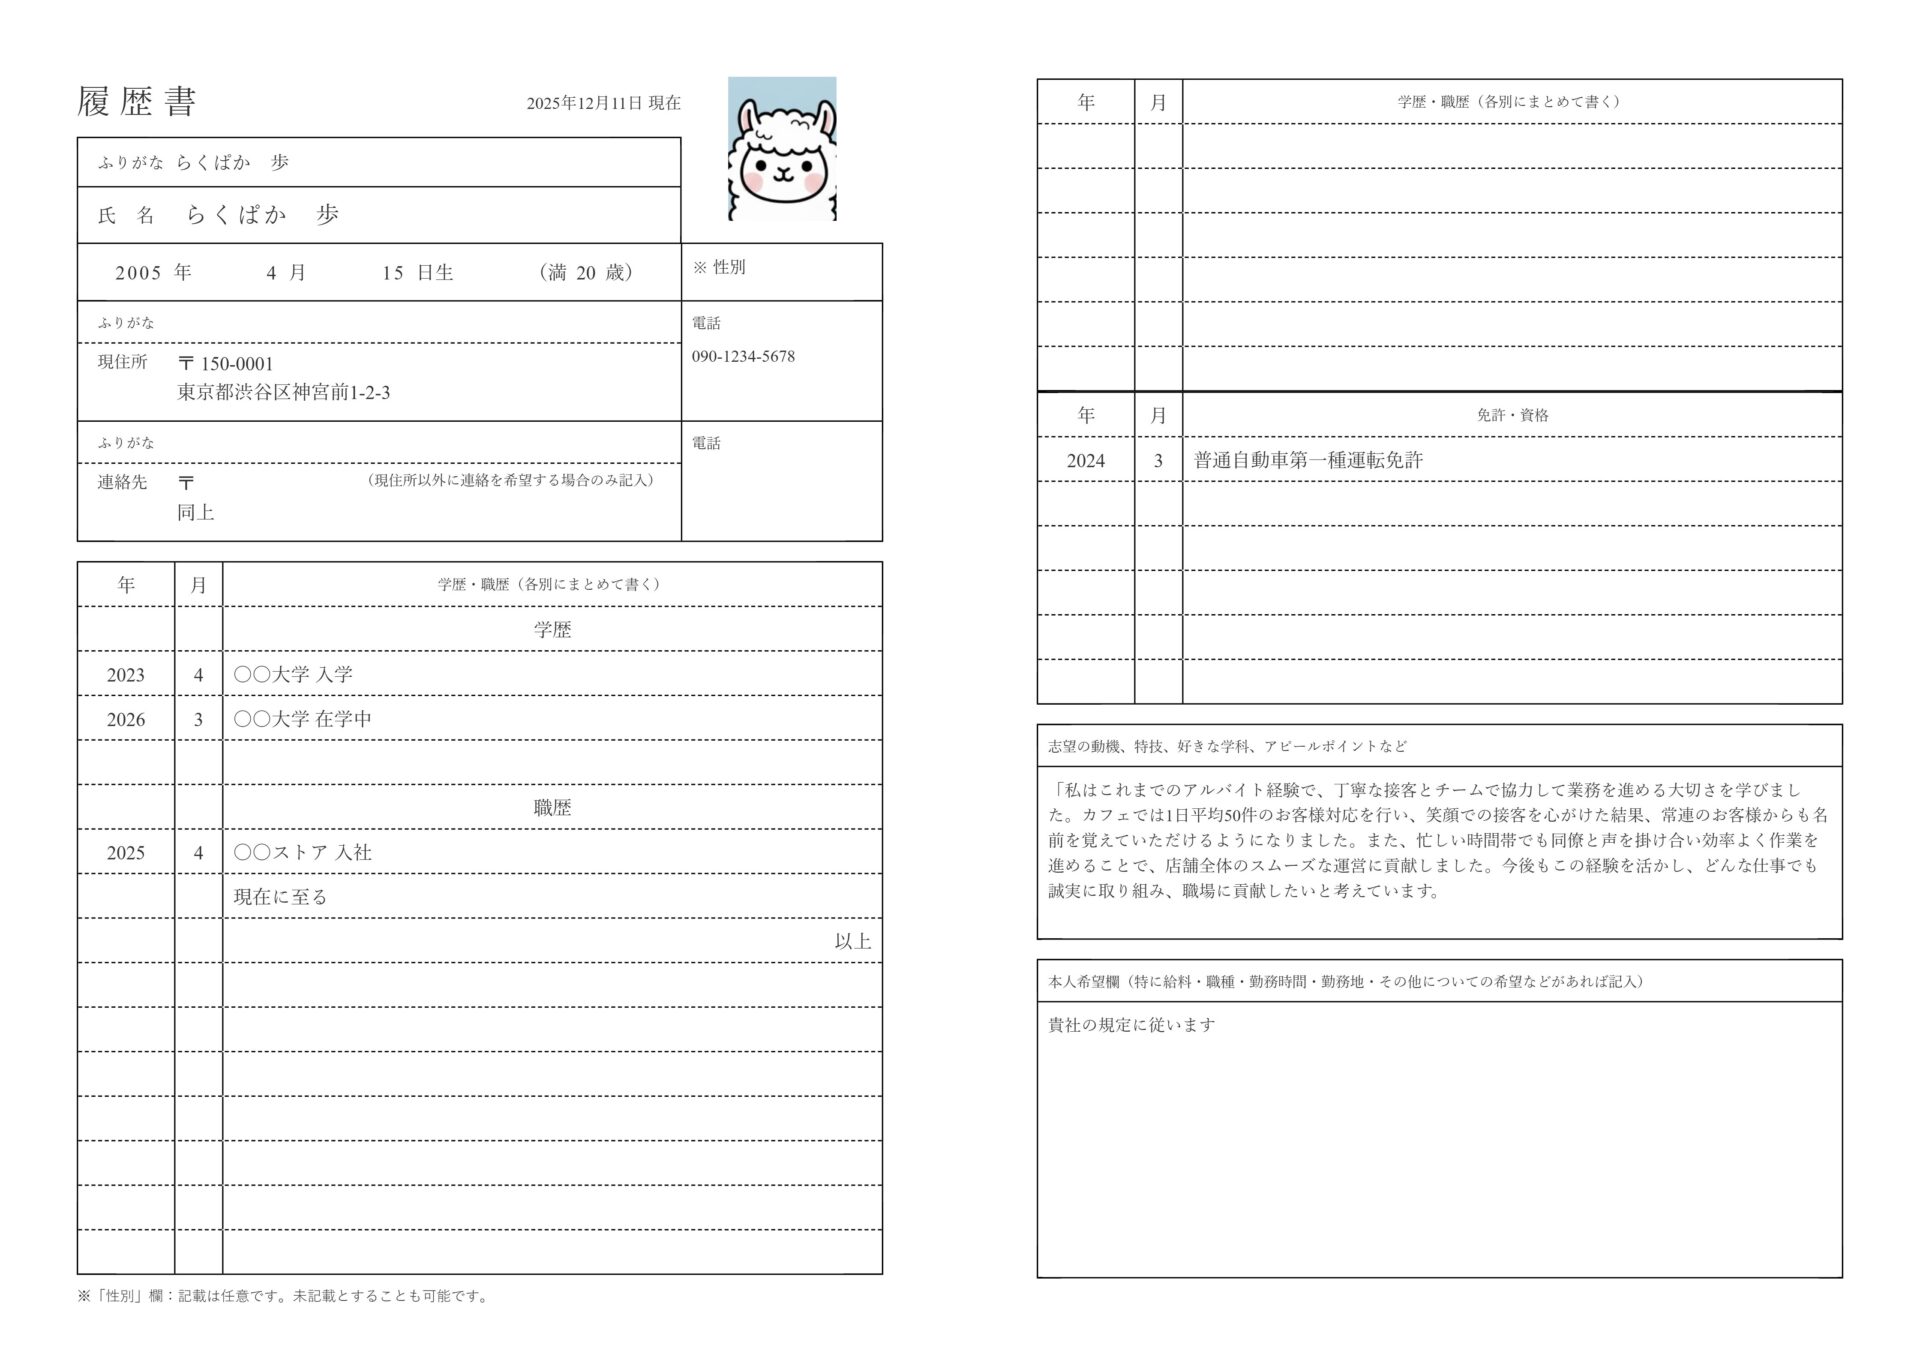 履歴書
2025年12月11日 現在
ふりがな らくぱか 歩
氏 名 らくぱか 歩
2005 年 4 月 15 日生 （満 20 歳）
※ 性別
ふりがな
現住所 〒 150-0001
東京都渋谷区神宮前1-2-3
電話
090-1234-5678
ふりがな
連絡先 〒 （現住所以外に連絡を希望する場合のみ記入）
同上
電話
年 月 学歴・職歴（各別にまとめて書く）
学歴
2023 4 〇〇大学 入学
2026 3 〇〇大学 在学中
職歴
2025 4 〇〇ストア 入社
現在に至る
以上
※「性別」欄：記載は任意です。未記載とすることも可能です。
年 月 学歴・職歴（各別にまとめて書く）
年 月 免許・資格
2024 3 普通自動車第一種運転免許
志望の動機、特技、好きな学科、アピールポイントなど
「私はこれまでのアルバイト経験で、丁寧な接客とチームで協力して業務を進める大切さを学びまし
た。カフェでは1日平均50件のお客様対応を行い、笑顔での接客を心がけた結果、常連のお客様からも名
前を覚えていただけるようになりました。また、忙しい時間帯でも同僚と声を掛け合い効率よく作業を
進めることで、店舗全体のスムーズな運営に貢献しました。今後もこの経験を活かし、どんな仕事でも
誠実に取り組み、職場に貢献したいと考えています。
本人希望欄（特に給料・職種・勤務時間・勤務地・その他についての希望などがあれば記入）
貴社の規定に従います